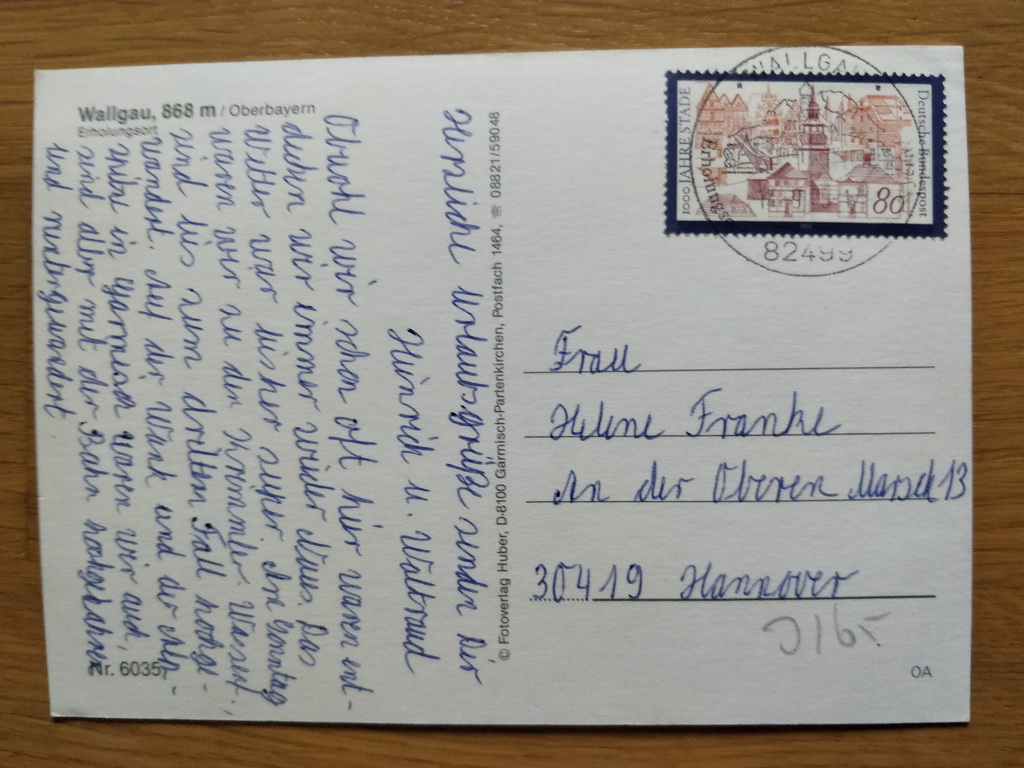 Wallgau, 868 m / Oberbayern
Erholungsort
Herzliche Urlaubsgrüße senden Dir
Heinrich u. Waltraud
Obwohl wir schon oft hier waren ent-
decken wir immer wieder Neues. Das
Wetter war bisher super. Am Sonntag
waren wir zu den Krimmler Wasserf.,
sind bis zum dritten Fall hochge-
wandert. Auf der Wank und der Alp-
spitze in Garmisch waren wir auch,
sind aber mit der Bahn hochgefahren
und runtergewandert
Nr. 6035
© Fotoverlag Huber, D-8100 Garmisch-Partenkirchen, Postfach 1464, ☏ 08821/59048
WALLGAU
Erholungs
82499
1000 JAHRE STADE
Deutsche Bundespost
80
Frau
Helene Franke
An der Oberen Marsch 13
30419 Hannover
OA